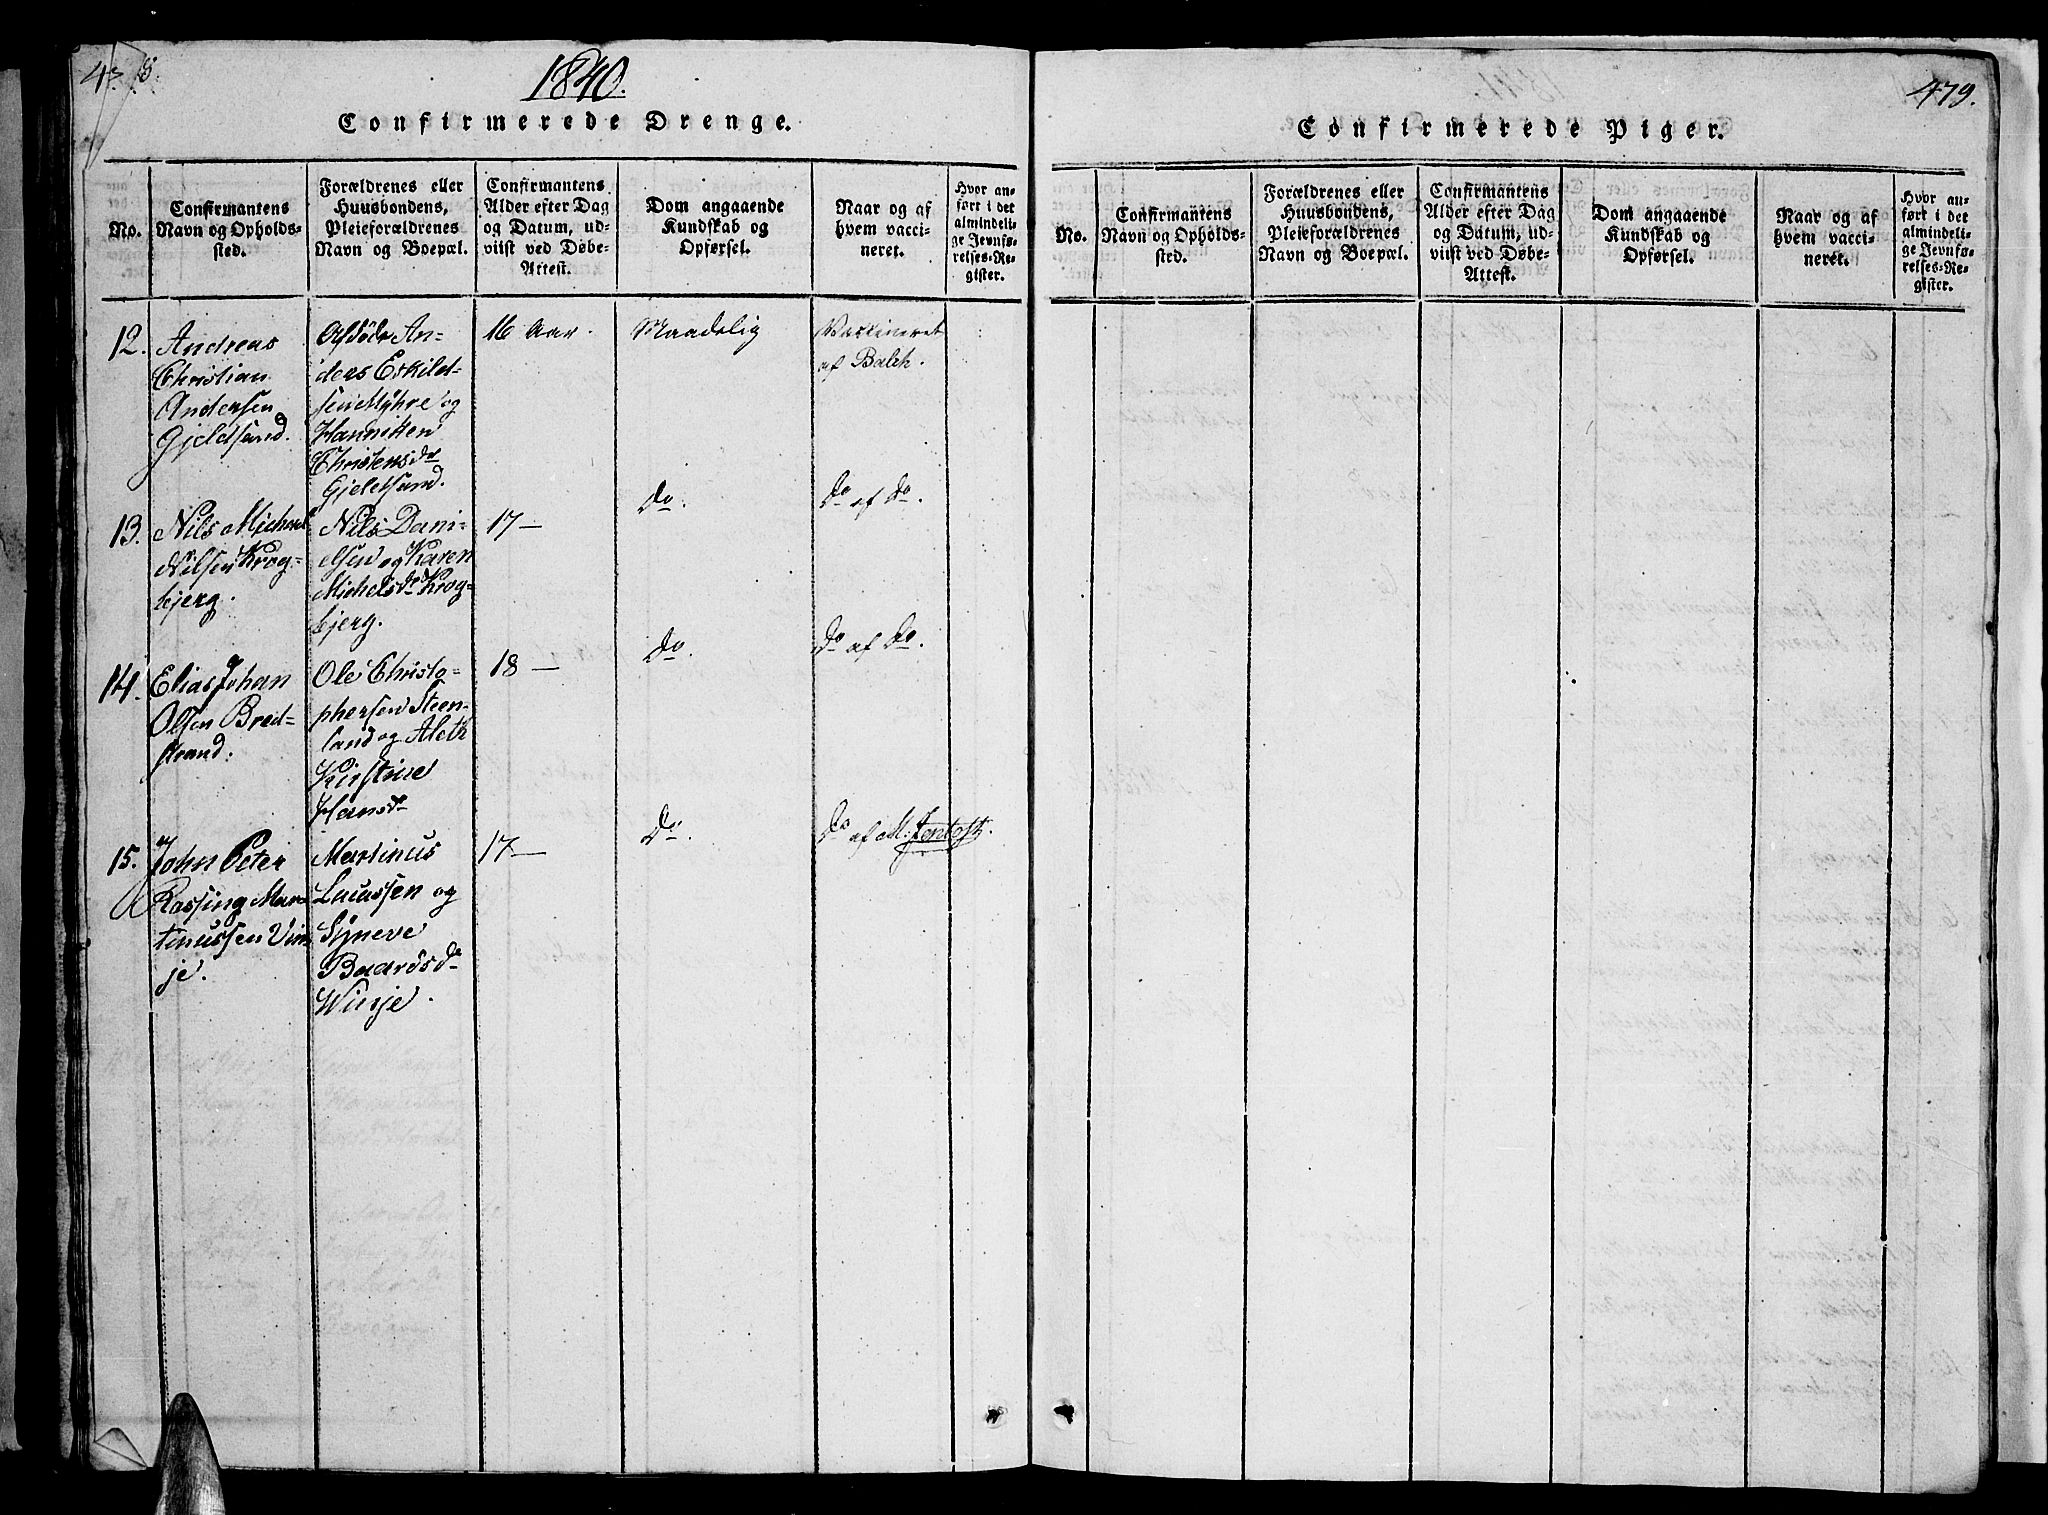 1840.
Confirmerede Drenge.
No.
Confirmantens
Navn og Opholds-
sted.
Forældrenes eller
Huusbondens,
Pleieforældrenes
Navn og Boepæl.
Confirmantens
Alder efter Dag
og Datum, ud-
viist ved Døbe-
Attest.
Dom angaaende
Kundskab og
Opførsel.
Naar og af
hvem vacci-
neret.
Hvor an-
ført i det
almindeli-
ge Jevnfø-
relses-Re-
gister.
12.
Andreas
Christian
Andersen
Gjeldsund.
Afdöde An-
ders Eskild-
sen Myhre og
Hanniken
Christensdr
Gjeldsund.
16 Aar.
Maadelig
Vaccineret
af Balch.
13.
Nils Michael
Nilsen Krog-
bjerg.
Nils Dani-
elsen og Karen
Michelsdr Krog-
bjerg.
17 —
Do.
Do af Do.
14.
Elias Johan
Olsen Bred-
strand.
Ole Christo-
phersen Steen-
land og Aleth
Kirstine
Hansdr
18 —
Do.
Do af Do.
15.
John Peter
Rassing Mar-
tinussen Vin-
je.
Martinus
Lucassen og
Syneve
Baardsdr
Winje.
17 —
Do.
Do af M: Jentoft.
479.
Confirmerede Piger.
No.
Confirmantens
Navn og Opholds-
sted.
Forældrenes eller
Huusbondens,
Pleieforældrenes
Navn og Boepæl.
Confirmantens
Alder efter Dag
og Datum, ud-
viist ved Døbe-
Attest.
Dom angaaende
Kundskab og
Opførsel.
Naar og af
hvem vacci-
neret.
Hvor an-
ført i det
almindeli-
ge Jevnfø-
relses-Re-
gister.